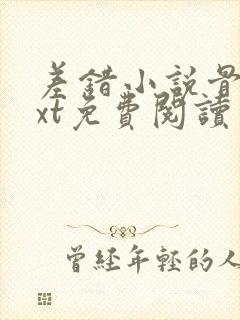 差錯小說骨
xt免費閱讀
曾經年輕的人